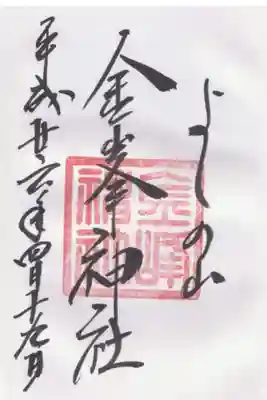 よしの山
金峯神社
平成廿六年四月十九日
金峰神社